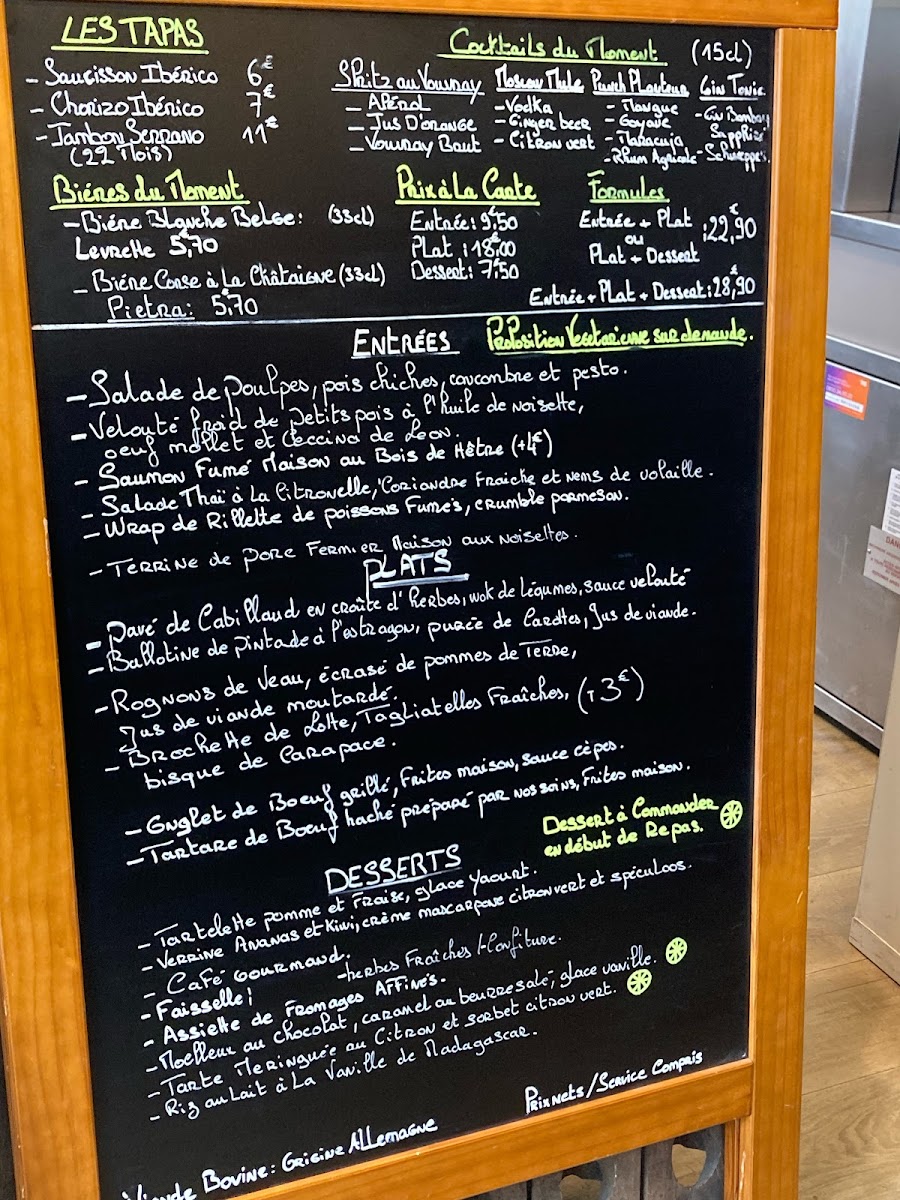 LES TAPAS
- Saucisson Ibérico 6€
- Chorizo Ibérico 7€
- Jambon Serrano 11€
(22 Mois)
Cocktails du Moment (15cl)
Spritz au Vouvray
- Apérol
- Jus D'orange
- Vouvray Brut
Moscow Mule
- Vodka
- Ginger beer
- Citron vert
Punch Planteur
- Mangue
- Goyave
- Maracuja
- Rhum Agricole
Gin Tonic
- Gin Bombay
Sapphire
- Schweppe's
Biéres du Moment
- Biére Blanche Belge: (33cl)
Levrette 5€,70
- Biére Corse à La Châtaigne (33cl)
Pietra: 5€,70
Prix à La Carte
Entrée: 9€,50
Plat : 18€,00
Dessert: 7€,50
Formules
Entrée + Plat
ou :22€,90
Plat + Dessert
Entrée + Plat + Dessert: 28€,90
ENTRÉES
Proposition Vegetarienne sur demande.
- Salade de poulpes, pois chiches, concombre et pesto.
- Velouté froid de petits pois à l'huile de noisette,
oeuf mollet et Ceccina de Leon.
- Saumon Fumé Maison au Bois de Hêtre (+4€)
- Salade Thaï à La Citronelle, Coriandre Fraiche et nems de volaille.
- Wrap de Rillette de poissons Fumés, crumble parmesan.
- Terrine de porc Fermier Maison aux noisettes.
PLATS
- Pavé de Cabillaud en croûte d'herbes, wok de légumes, sauce velouté
- Ballotine de pintade à l'estragon, purée de Carottes, Jus de viande.
- Rognons de Veau, écrasé de pommes de Terre,
Jus de viande moutarde.
- Brochette de Lotte, Tagliatelles Fraîches, (+3€)
bisque de Carapace.
- Onglet de Boeuf grillé, Frites maison, sauce cèpes.
- Tartare de Boeuf haché préparé par nos soins, Frites maison.
Dessert à Commander
en début de Repas.
DESSERTS
- Tartelette pomme et Fraise, glace yaourt.
- Verrine Ananas et Kiwi, crème mascarpone citron vert et spéculoos.
- Café Gourmand.
- Faisselle: -herbes Fraîches / Confiture.
- Assiette de Fromages Affinés.
- Moelleur au chocolat, caramel au beurre salé, glace vanille.
- Tarte Meringuée au Citron et sorbet citron vert.
- Riz au Lait à La Vanille de Madagascar.
Prix nets/Service Compris
Viande Bovine: Origine Allemagne